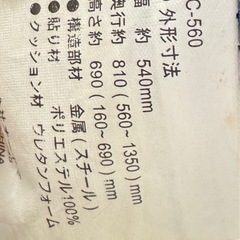 C-560
外形寸法
幅 約 540mm
奥行約 810(560~1350)mm
高さ約 690(160~690)mm
●構造部材 金属(スチール)
●貼り材 ポリエステル100%
●クッション材 ウレタンフォーム